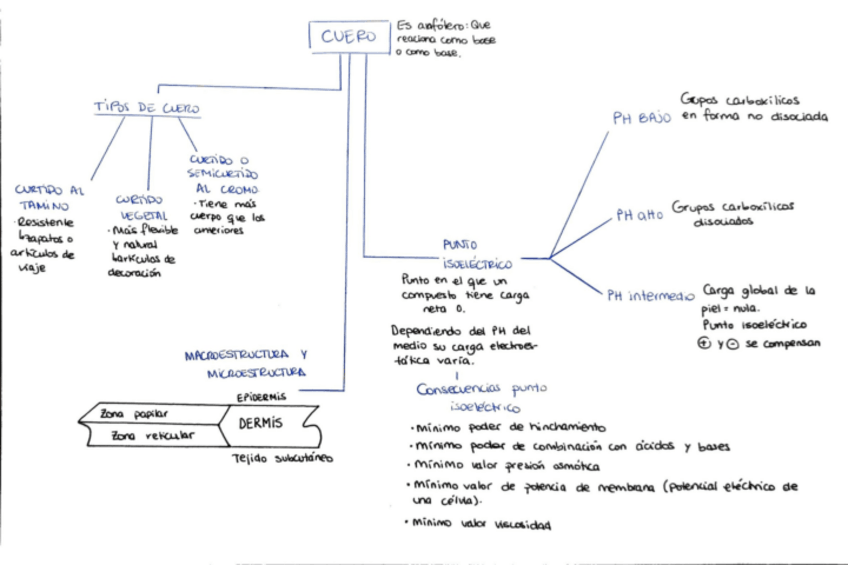 CUERO
Es anfótero: Que
reaciona como base
o como base.
TIPOS DE CUERO
CURTIDO AL
TANINO
·Resistente
↳zapatos o
artículos de
viaje
CURTIDO
VEGETAL
·Más flexible
y natural
↳artículos de
decoración
CURTIDO O
SEMICURTIDO
AL CROMO
·Tiene más
cuerpo que los
anteriores
PUNTO
ISOELÉCTRICO
Punto en el que un
compuesto tiene carga
neta 0.
Dependiendo del PH del
medio su carga electroes-
tática varía.
PH BAJO
Grupos carboxílicos
en forma no disociada
PH alto
Grupos carboxílicos
disociados
PH intermedio
Carga global de la
piel = nula.
Punto isoeléctrico
⊕ y ⊖ se compensan
Consecuencias punto
isoeléctrico
·Mínimo poder de hinchamiento
·Mínimo poder de combinación con ácidos y bases
·Mínimo valor presión osmótica
·Mínimo valor de potencia de membrana (Potencial eléctrico de
una célula).
·Mínimo valor viscosidad
MACROESTRUCTURA Y
MICROESTRUCTURA
EPIDERMIS
Zona papilar
Zona reticular
DERMIS
Tejido subcutáneo